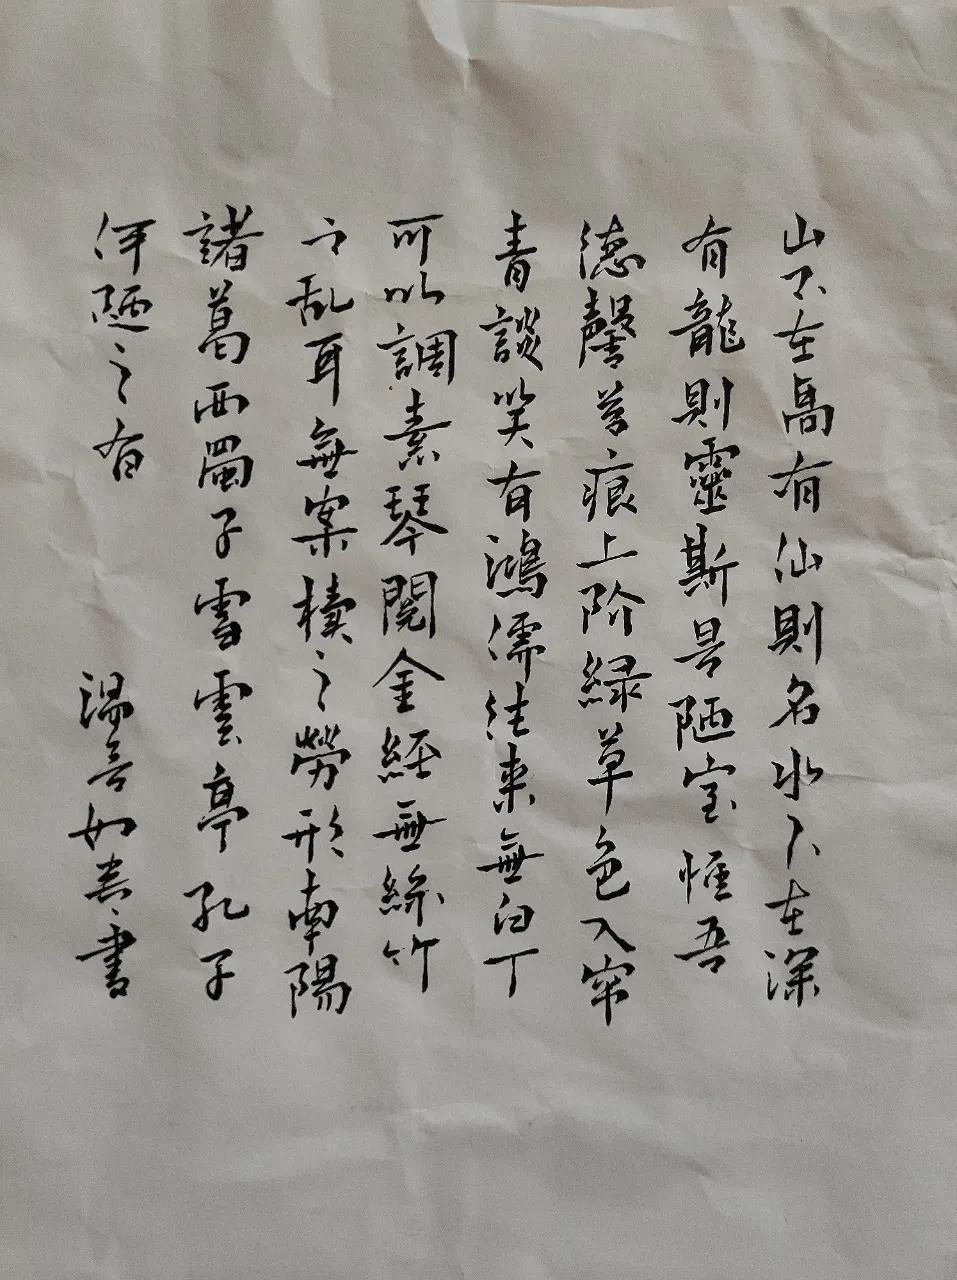 山不在高有仙則名水不在深
有龍則靈斯是陋室惟吾
德馨苔痕上阶緑草色入帘
青談笑有鴻儒往来無白丁
可以調素琴閲金經無絲竹
之乱耳無案牘之勞形南陽
諸葛西蜀子雪雲亭孔子
何陋之有
書